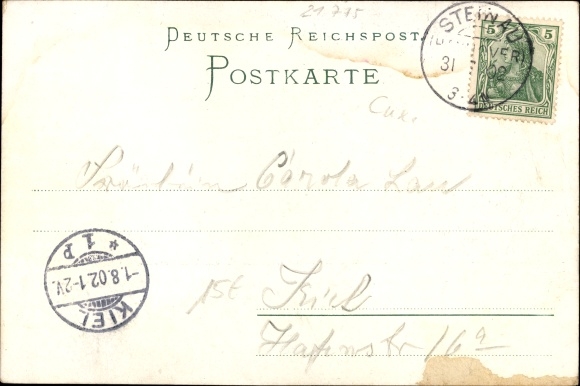 21 715
DEUTSCHE REICHSPOST
POSTKARTE
STEINAU
31 02
3-4N
5 5
DEUTSCHES REICH
Cux.
Fräulein Carola Lau
15t
Kiel
Hafenstr 16a
KIEL
-1.8.02.1-2V.
* 1 P